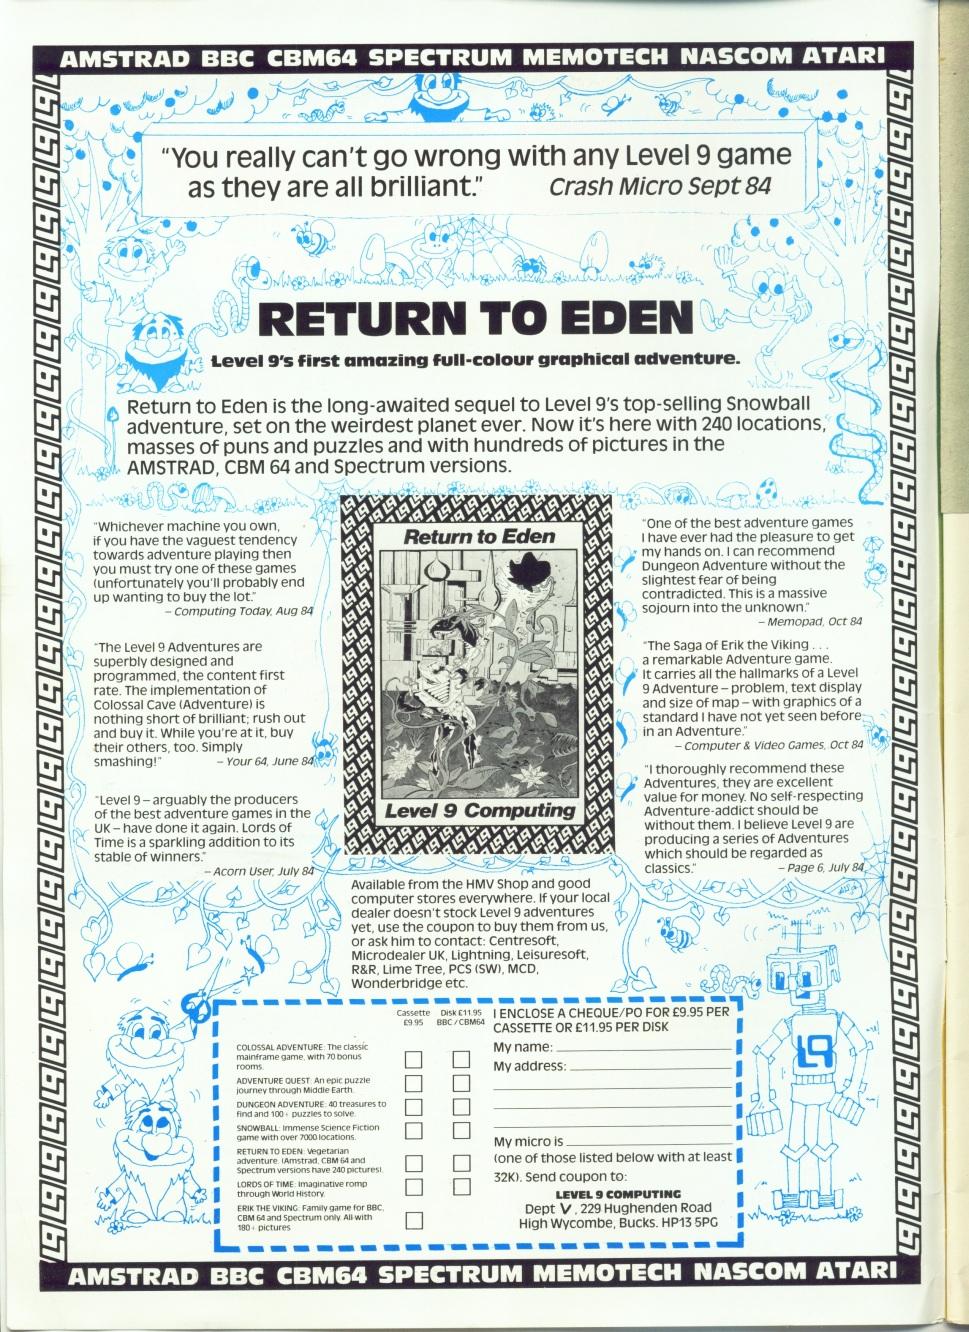 AMSTRAD BBC CBM64 SPECTRUM MEMOTECH NASCOM ATARI
"You really can't go wrong with any Level 9 game
as they are all brilliant." Crash Micro Sept 84
RETURN TO EDEN
Level 9's first amazing full-colour graphical adventure.
Return to Eden is the long-awaited sequel to Level 9's top-selling Snowball
adventure, set on the weirdest planet ever. Now it's here with 240 locations,
masses of puns and puzzles and with hundreds of pictures in the
AMSTRAD, CBM 64 and Spectrum versions.
"Whichever machine you own,
if you have the vaguest tendency
towards adventure playing then
you must try one of these games
(unfortunately you'll probably end
up wanting to buy the lot."
– Computing Today, Aug 84
"The Level 9 Adventures are
superbly designed and
programmed, the content first
rate. The implementation of
Colossal Cave (Adventure) is
nothing short of brilliant; rush out
and buy it. While you're at it, buy
their others, too. Simply
smashing!" – Your 64, June 84
"Level 9 – arguably the producers
of the best adventure games in the
UK – have done it again. Lords of
Time is a sparkling addition to its
stable of winners."
– Acorn User, July 84
Return to Eden
Level 9 Computing
"One of the best adventure games
I have ever had the pleasure to get
my hands on. I can recommend
Dungeon Adventure without the
slightest fear of being
contradicted. This is a massive
sojourn into the unknown."
– Memopad, Oct 84
"The Saga of Erik the Viking . . .
a remarkable Adventure game.
It carries all the hallmarks of a Level
9 Adventure – problem, text display
and size of map – with graphics of a
standard I have not yet seen before
in an Adventure."
– Computer & Video Games, Oct 84
"I thoroughly recommend these
Adventures, they are excellent
value for money. No self-respecting
Adventure-addict should be
without them. I believe Level 9 are
producing a series of Adventures
which should be regarded as
classics." – Page 6, July 84
Available from the HMV Shop and good
computer stores everywhere. If your local
dealer doesn't stock Level 9 adventures
yet, use the coupon to buy them from us,
or ask him to contact: Centresoft,
Microdealer UK, Lightning, Leisuresoft,
R&R, Lime Tree, PCS (SW), MCD,
Wonderbridge etc.
Cassette Disk £11.95
£9.95 BBC/CBM64
COLOSSAL ADVENTURE: The classic
mainframe game, with 70 bonus
rooms.
ADVENTURE QUEST: An epic puzzle
journey through Middle Earth.
DUNGEON ADVENTURE: 40 treasures to
find and 100+ puzzles to solve.
SNOWBALL: Immense Science Fiction
game with over 7000 locations.
RETURN TO EDEN: Vegetarian
adventure. (Amstrad, CBM 64 and
Spectrum versions have 240 pictures).
LORDS OF TIME: Imaginative romp
through World History.
ERIK THE VIKING: Family game for BBC,
CBM 64 and Spectrum only. All with
180+ pictures
I ENCLOSE A CHEQUE/PO FOR £9.95 PER
CASSETTE OR £11.95 PER DISK
My name:
My address:
My micro is
(one of those listed below with at least
32K). Send coupon to:
LEVEL 9 COMPUTING
Dept V, 229 Hughenden Road
High Wycombe, Bucks. HP13 5PG
L9
AMSTRAD BBC CBM64 SPECTRUM MEMOTECH NASCOM ATARI